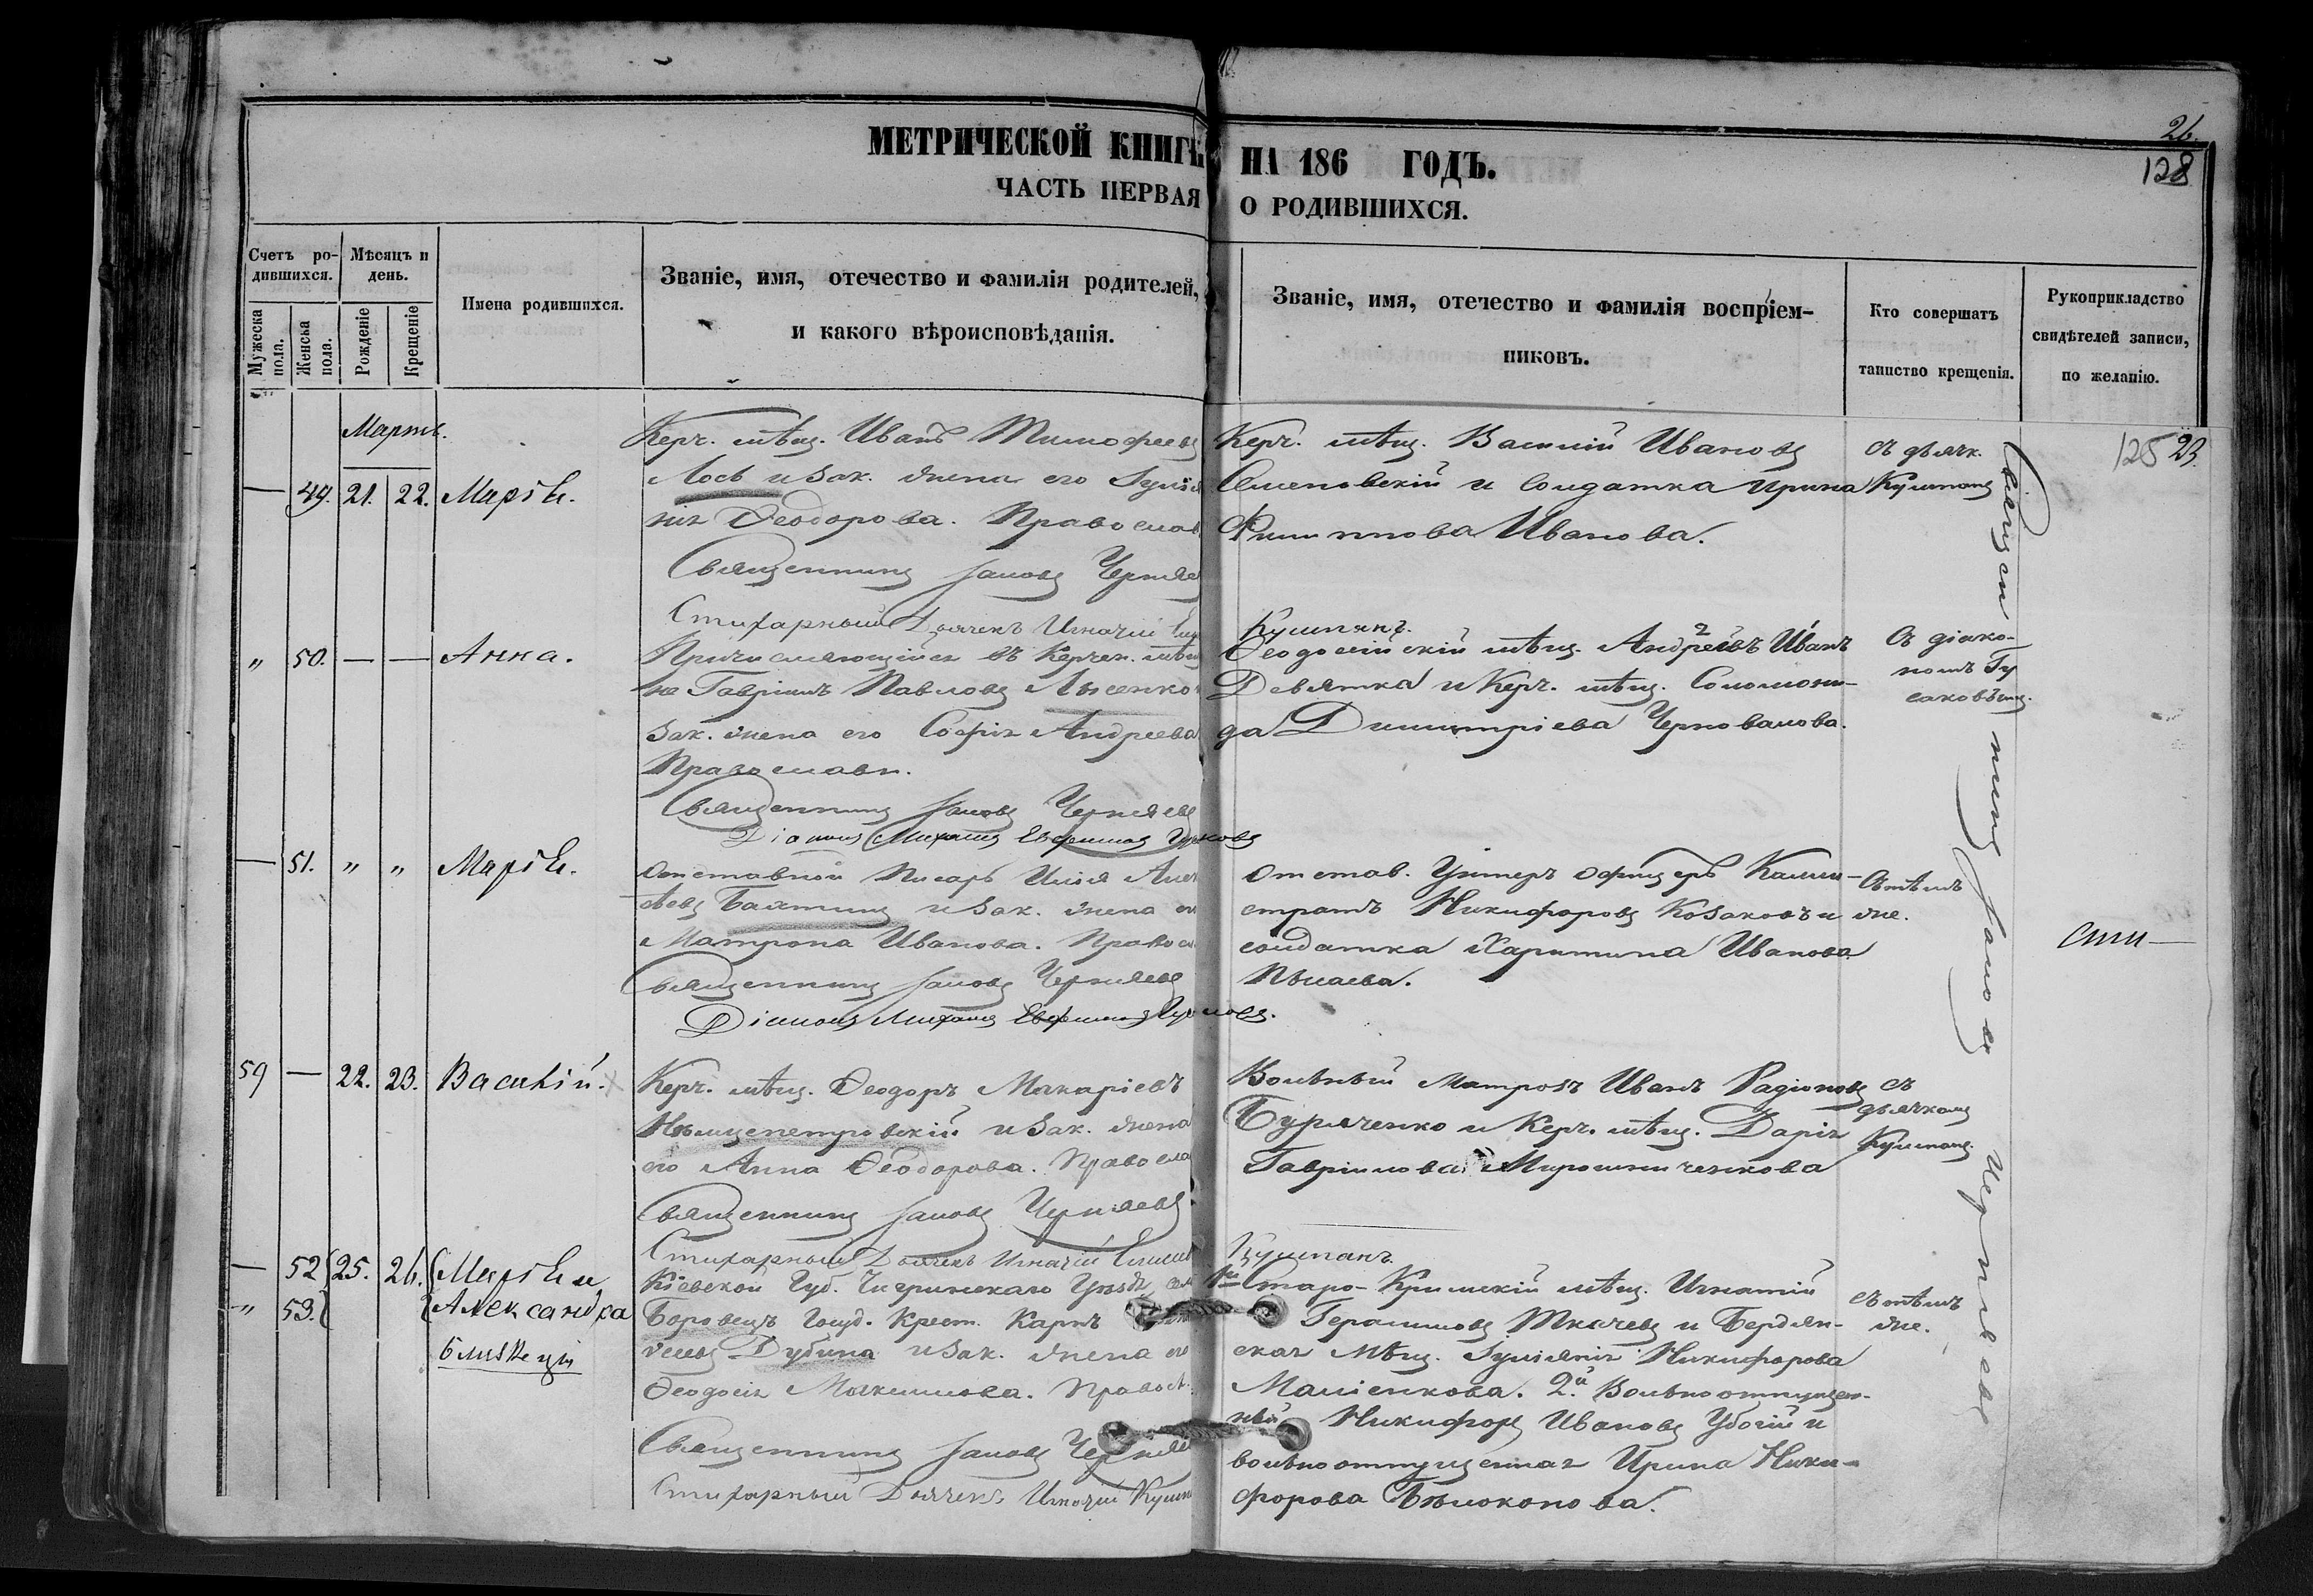 МЕТРИЧЕСКОЙ КНИГѢ НА 186 ГОДЪ.
ЧАСТЬ ПЕРВАЯ О РОДИВШИХСЯ.
26.
128
Счетъ ро-
дившихся.
Мѣсяцъ и
день.
Мужеска пола.
Женска пола.
Рожденіе
Крещеніе
Имена родившихся.
Званіе, имя, отечество и фамилія родителей,
и какого вѣроисповѣданія.
Званіе, имя, отечество и фамилія воспріем-
никовъ.
Кто совершатъ
таинство крещенія.
Рукоприкладство
свидѣтелей записи,
по желанію.
Мартъ.
— 49. 21. 22. Марія.
Керч. мѣщ. Иванъ Тимофеевъ
Лось и зак. жена его
Ѳеодорова. Православ
Священникъ Іаковъ Черняев
Стихарный Дьячекъ Игнатій
Керч. мѣщ. Василій Ивановъ
Семеновскій и солдатка Ирина
Филиппова Иванова.
съ дьячк.
125 23.
Кушпанъ.
„ 50. — — Анна.
Причисляющійся въ Керчен. мѣщ
не Гавріилъ Павловъ Лысенко
зак. жена его Софія Андреева
Православн.
Священникъ Іаковъ Черняевъ
Діаконъ Михаилъ Гусаковъ
Ѳеодосійскій мѣщ. Андреевъ 2 Иванъ
Девятка и Керч. мѣщ. Соломони-
да Димитріева Чернованова.
Съ діако-
номъ Гу
саковымъ.
— 51. „ „ Марія.
Отставной Писарь Илія Але
ѣевъ Бахтинъ и зак. жена ег
Матрона Иванова. Правос
Священникъ Іаковъ Черняевъ
Діаконъ Михаилъ Гусаковъ.
Отстав. Унтеръ Офицеръ Калли-
стратъ Никифоровъ Козаковъ и
солдатка Харитина Иванова
Съ тѣмъ
же.
59 — 22. 23. Василій.
Керч. мѣщ. Ѳеодоръ Макаріевъ
и зак. жена
его Анна Ѳеодорова. Правосла
Священникъ Іаковъ Черняевъ
Стихарный Дьячекъ Игнатій
Вольный матрозъ Иванъ Радіоновъ
Буряченко и Керч. мѣщ. Дарія
Гавріилова Мирошниченкова
съ
дьячкомъ
Кушпан.
Кушпанъ.
— 52 25. 26. Марія и
„ 53. Александра
близнецы
Кіевской Губ. Чигринскаго Уѣзда сел
Боровецъ Госуд. Крест. Карпъ
Дубина и зак. жена его
Ѳеодосія Максимова. Правосл.
Священникъ Іаковъ Черняе
Стихарный Дьячекъ Игнатій Кушп
1й Старо-Крымскій мѣщ. Игнатій
Герасимовъ Ткачевъ и Бердян-
ская Мѣщ. Іуліянія Никифорова
Маліенкова. 2.й Вольноотпущен-
ный Никифоръ Ивановъ Убогій и
вольноотпущенная Ирина Ники-
форова Бѣлоконова.
съ тѣмъ
же.
Священникъ Іаковъ Черняевъ